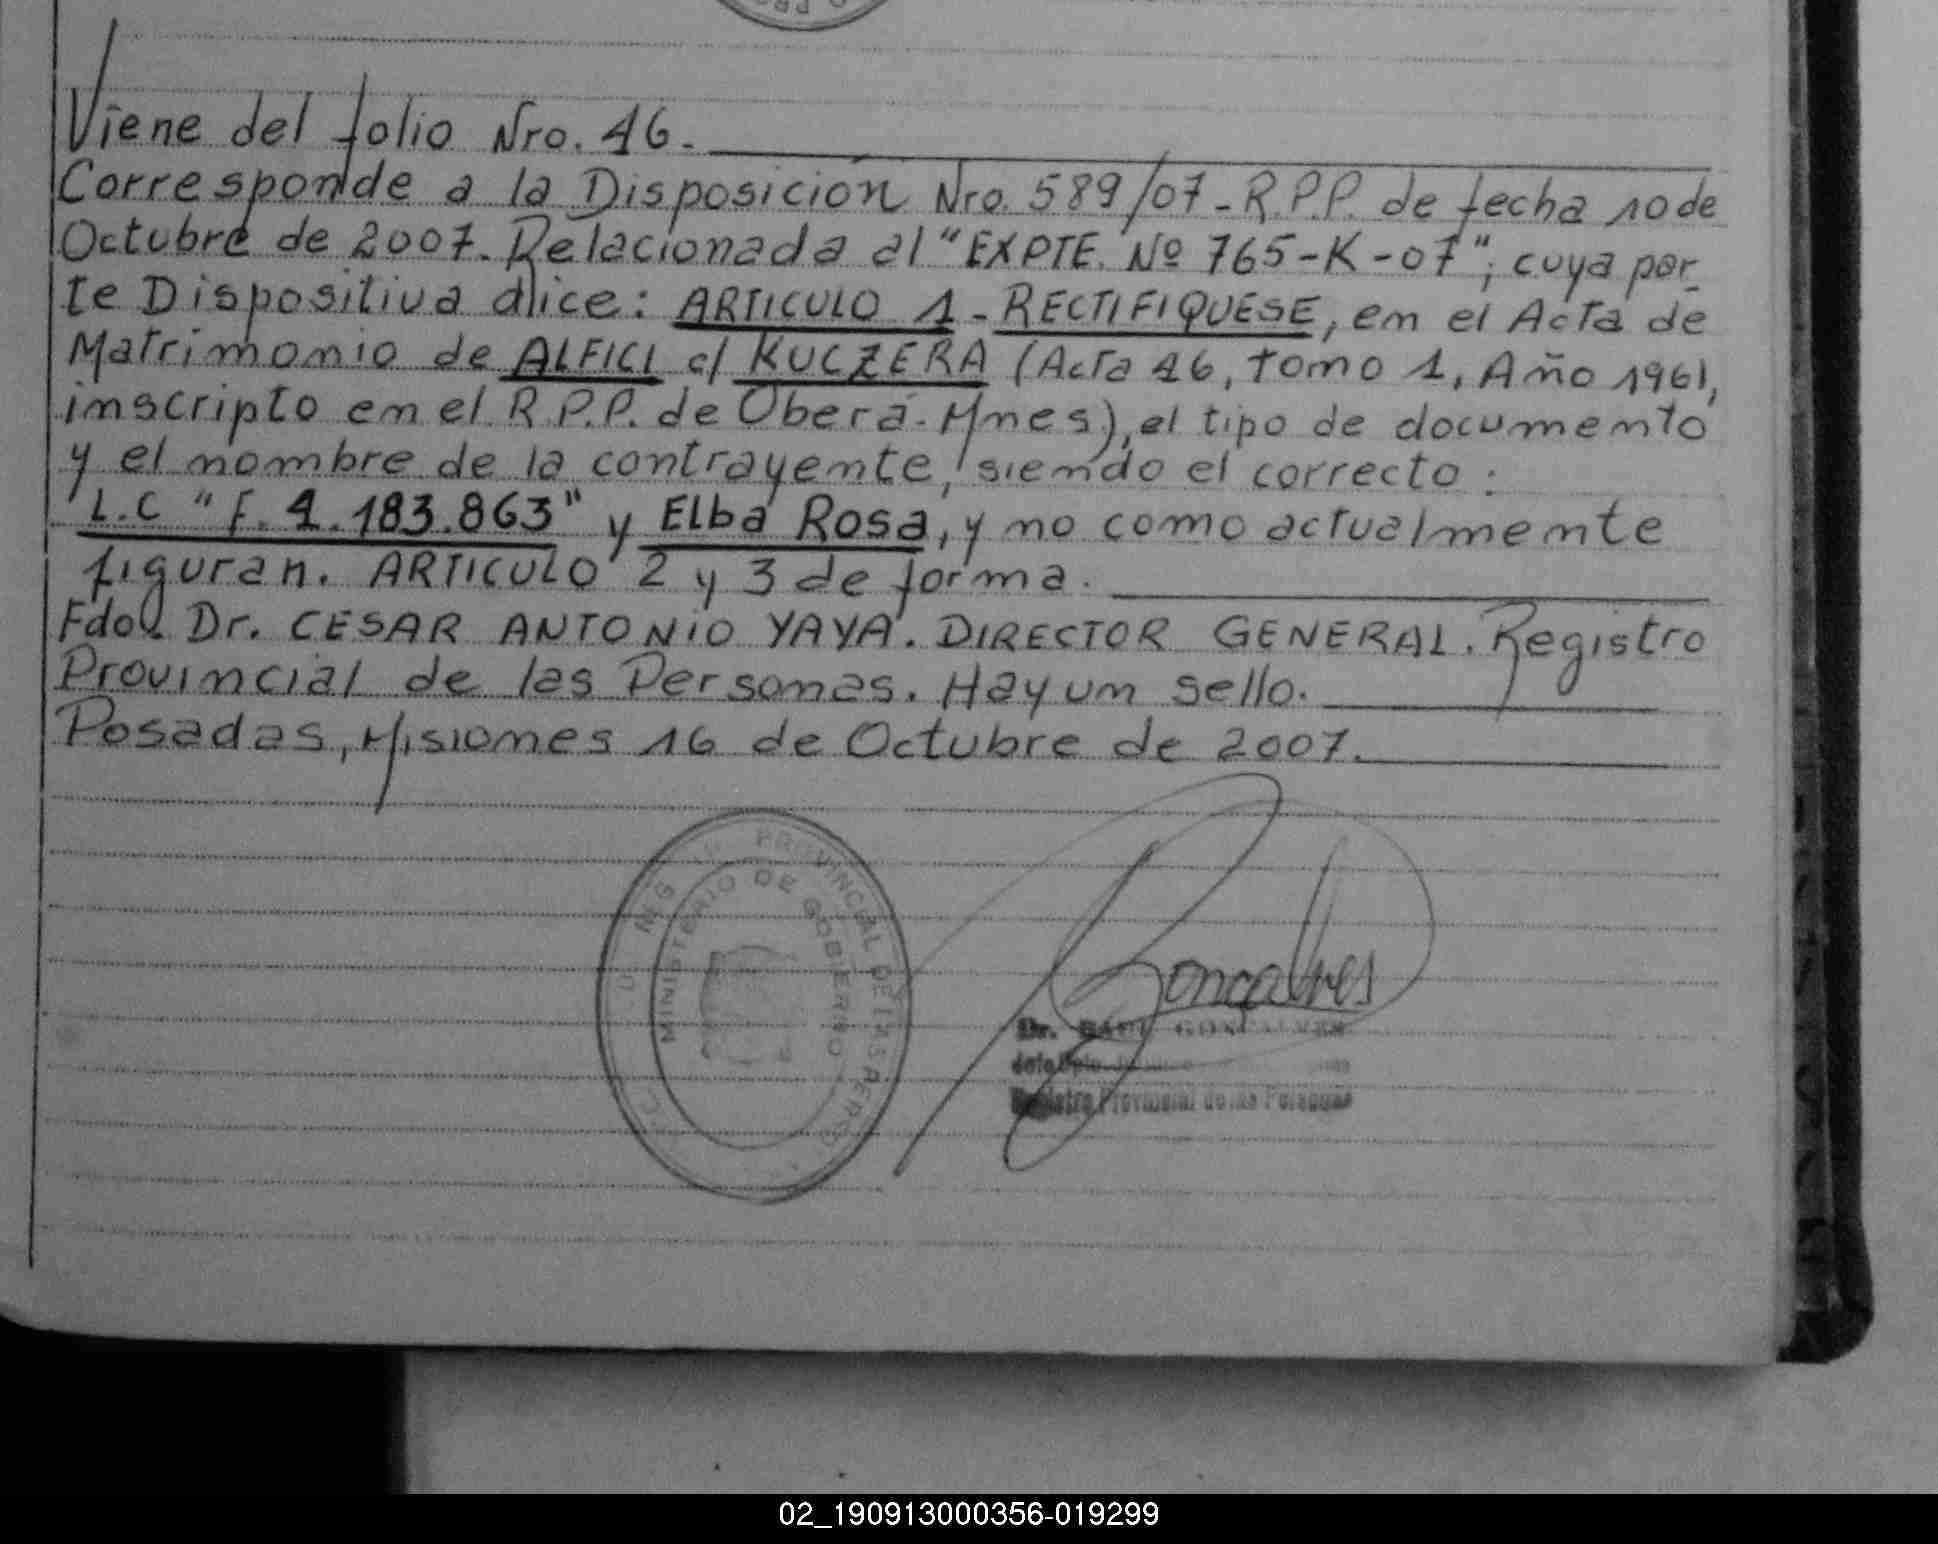 Viene del folio Nro. 46.
Corresponde a la Disposición Nro. 589/07-R.P.P. de fecha 10 de
Octubre de 2007. Relacionada al "EXPTE. Nº 765-K-07"; cuya par_
te Dispositiva dice: ARTICULO 1 - RECTIFIQUESE, en el Acta de
Matrimonio de ALFICI c/ KUCZERA (Acta 46, Tomo 1, Año 1961,
inscripto en el R.P.P. de Oberá-Mnes), el tipo de documento
y el nombre de la contrayente, siendo el correcto:
L.C "F. 4.183.863" y Elba Rosa, y no como actualmente
figuran. ARTICULO 2 y 3 de forma.
Fdo. Dr. CESAR ANTONIO YAYA. DIRECTOR GENERAL. Registro
Provincial de las Personas. Hay un sello.
Posadas, Misiones 16 de Octubre de 2007.
PROVINCIAL DE LAS PERS
MINISTERIO DE GOBIERNO
Goncalves
Dr. RAUL GONCALVES
Registro Provincial de las Personas
02_190913000356-019299